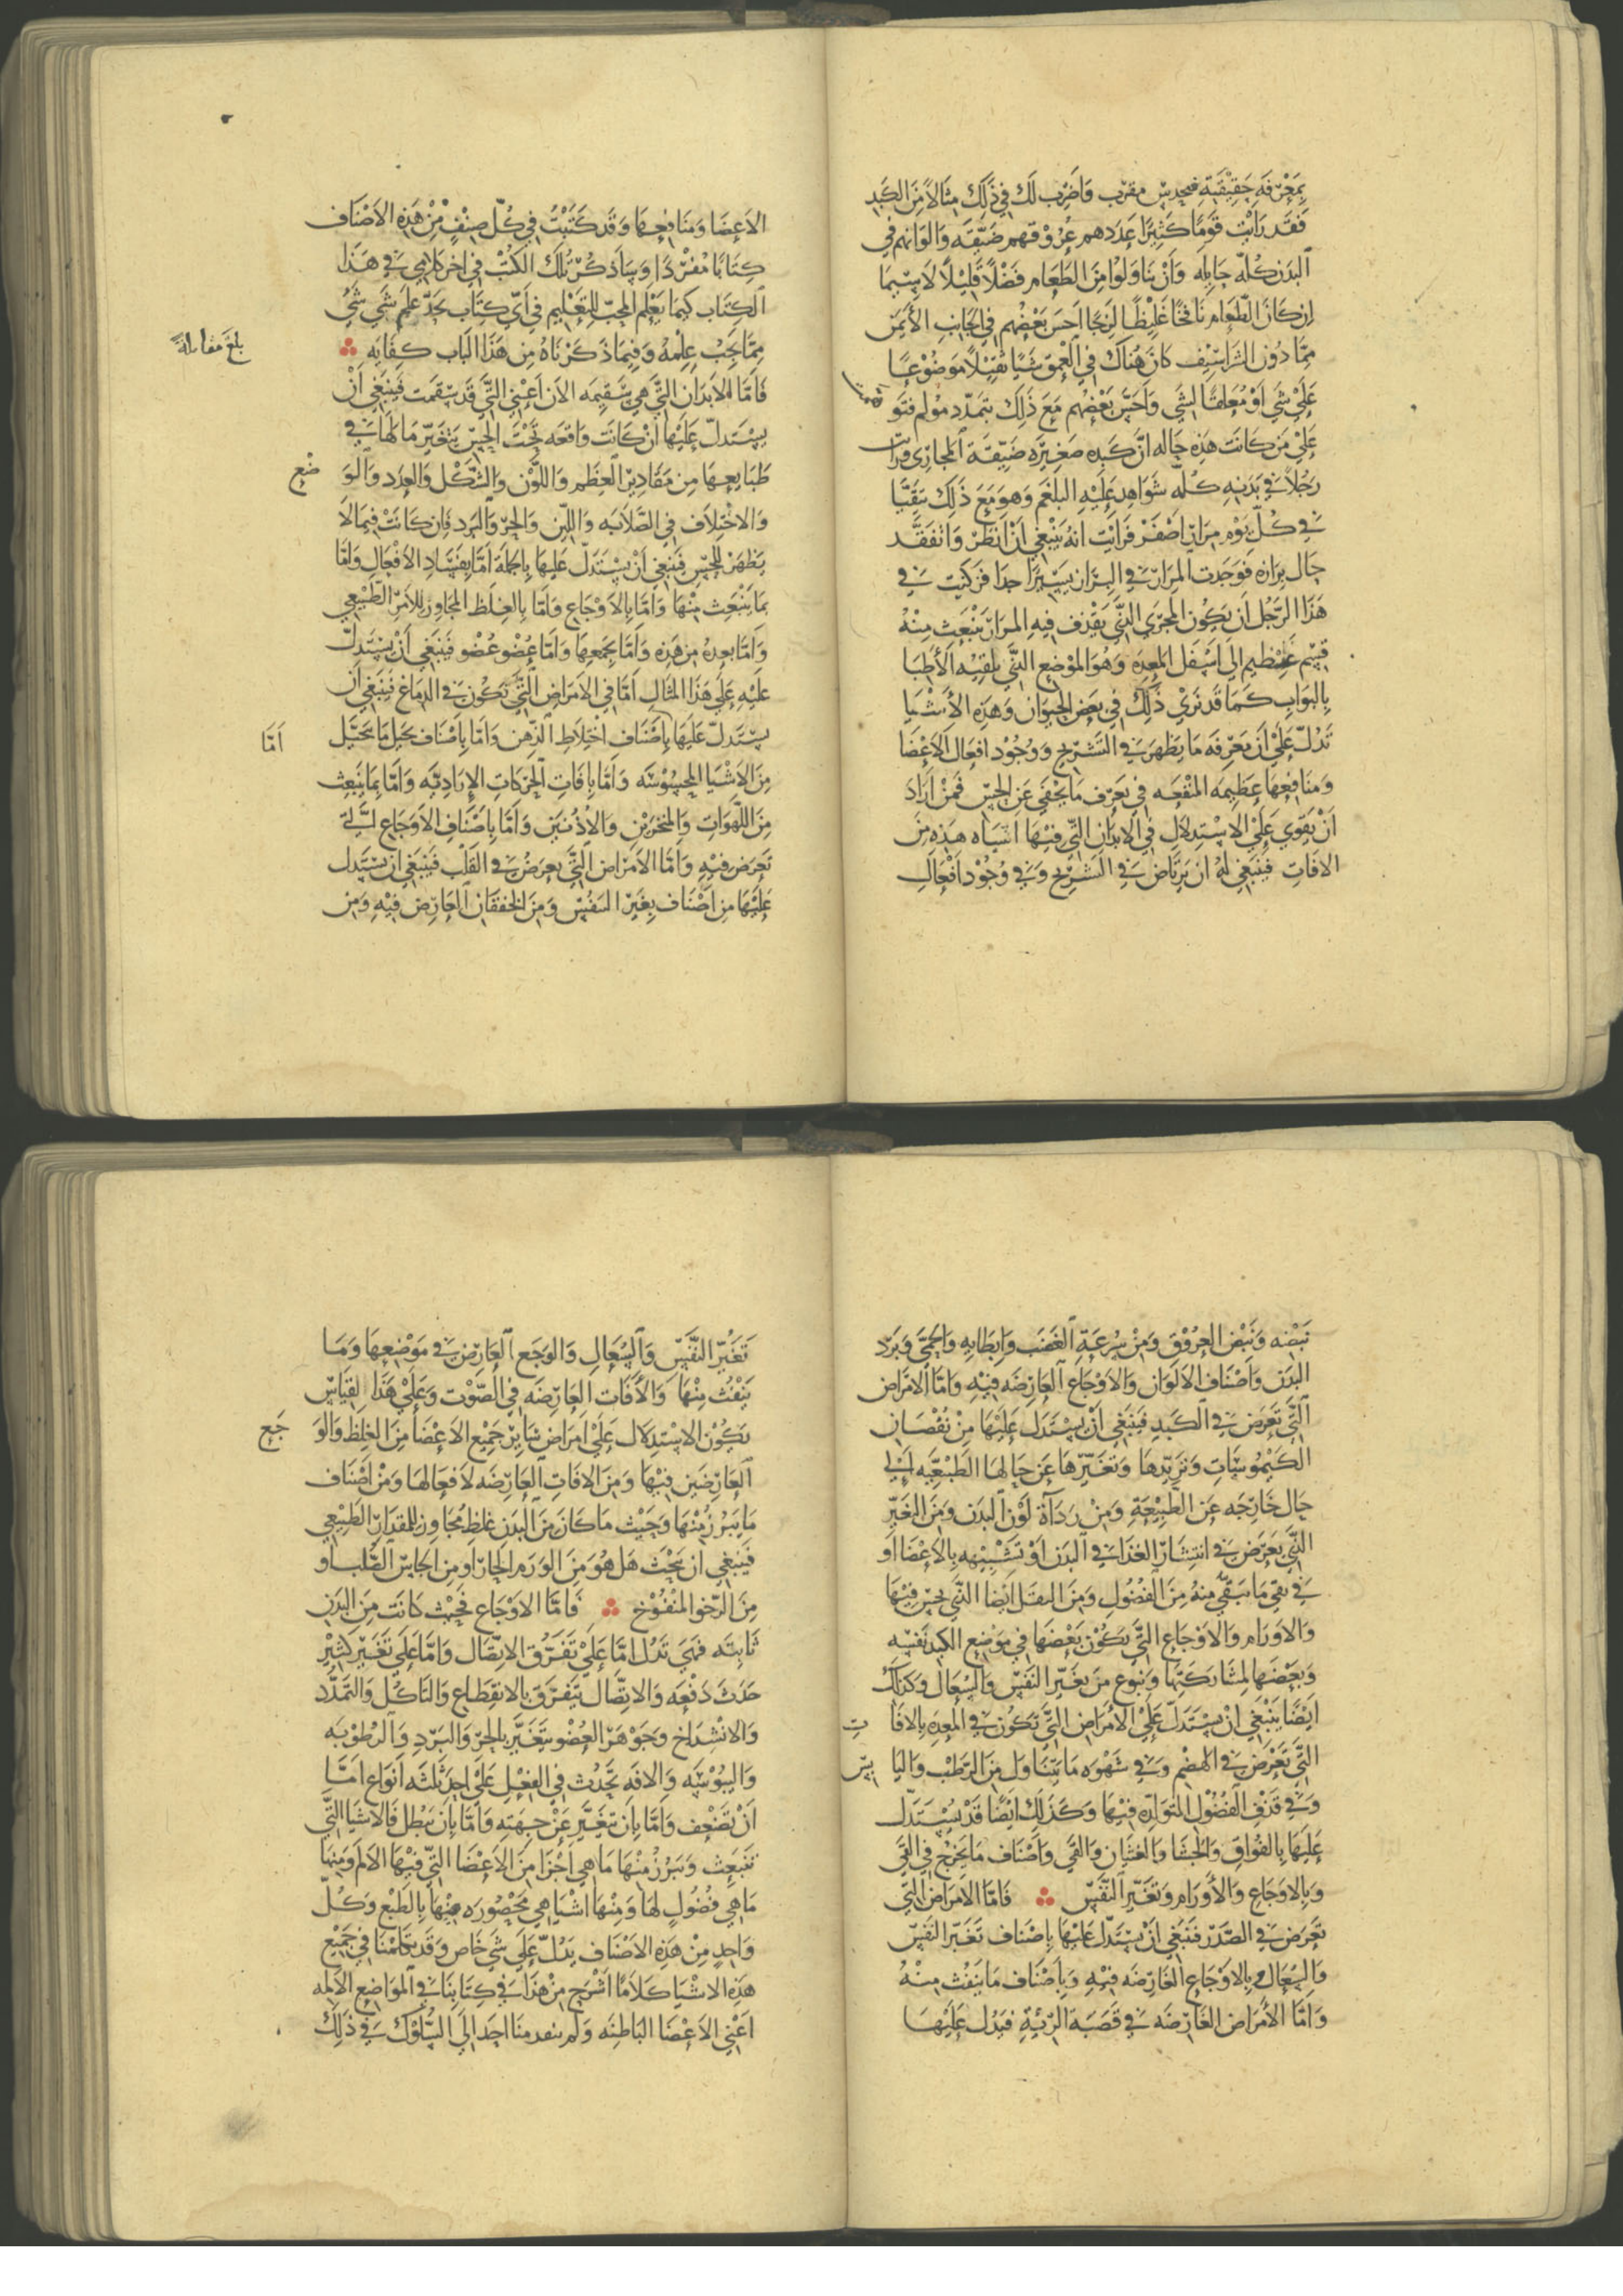 بِمَعْرِفَةٍ حَقِيْقِيَّةٍ فبحدس مقرب وَاَضْرِب لَكَ فِي ذَلِكَ مِثَالاً مِنَ الكَبِد
فَقَد رَاَيْت قَوْمًا كَثِيرًا عَدَدهم عُرُوْقهم ضَيّقَه وَالوَانهم فِي
البَدَن كُلّه حَايِلَه وَاِنْ تنَاوَلُوا مِنَ الطَعَام فَضْلاً قَلِيْلاً لاَ سِيّمَا
اِن كَانَ الطّعَام نَافِخًا غَلِيْظًا لَزِجًا اَحَسَّ بَعْضُهم فِي الجَانِبِ الأيمَن
مِمّا دُون الشَرَاسِيْف كَانَ هُنَاكَ فِي العُمق شَيًا ثَقِيْلاً مَوضُوْعًا
عَلَيْ شَي اَوْ مُعَلقًا بشَي وَاَحَسَّ بَعْضُهم مَعَ ذَلِكَ بتَمدّد مؤلم فتَو
همت
عَلَيْ مَن كَانَت هَذِه حَاله انَّ كَبِده صَغِيْرَه ضَيّقَة المَجَارِي وَرَاَيت
رَجُلاً فِي بَدَنِهِ كُلّه شَوَاهِد عَلَيْهِ البلغَم وَهوَ مَعَ ذَلِكَ يتَقَيَّا
فِي كُلّ يَوْم مِرَارًا اَصْفَرَ فَرَاَيْت اَنّهُ يَنْبغِي اَنْ اَنظرَ وَاتفَقَّد
حَال برَازه فَوَجَدت المِرَارَ فِي البَرَاز يَسِيْرًا جدًا فَزَكنت فِي
هَذَا الرّجُل اَن يَكُون المَجرَي الّذَّي يَقْذف فِيهِ المرَار يَنْبَعِث مِنْهُ
قِسْم عَظِيم الَي اَسْفَل المَعِدَه وَهُوَ المَوْضِع الذّي يلقبْه الأطِبّا
بِالبَوَاب كَمَا قَد نَرَيْ ذَلِكَ فِي بَعَض الحِيوَان وَهَذِهِ الأشْيَا
تَدُلّ عَلَيْ اَن مَعْرِفَه مَا يَظهَر فِي التَشْرِيح وَوجُوْد افعَال الاَعْضَا
وَمنَافِعِهَا عِظِيمَه المَنْفَعَه فِي تَعَرّف مَا يَخْفَي عَن الحِسّ فَمَنْ اَرَادَ
اَنْ يَقوَي عَلَيْ الاِسْتِدلاَل فِي الاَبدَانِ التّي فِيْهَا اشيَاه هَذِه مِنَ
الافَاتِ فَيَنْبَغِي لهُ اَن يَرتَاض فِي التَشرِيح وَفِي وُجُوْد اَفْعَال
الاَعِضَا وَمنَافِعِهَا وَقَد كَتَبْتُ فِي كُلّ صِنْفٍ مِنْ هَذِهِ الاَصْنَاف
كِتَابًا مُفْرَدًا وَسَاَذكُر تُلكَ الكُتُبْ فِي اخر كَلاَمِي فِي هَذَا
الكِتَاب كَيمَا يَعْلَم المحِبّ للِتَعْلِيم فِي اَيّ كِتَاب يَجدّ علم شَي شَي
مِمّا يَجِبْ عِلمْهُ وَفِيمَا ذَكَرْنَاهُ مِن هَذَا البَاب كفَايَه
بلغ مقابلةً
فَامّا الاَبدَان التَّي هي سَقِيمَه الاَن اَعْنِي التَّي قَد سَقمَت فَينبَغِي اَنْ
يسْتَدلّ عَلَيْهَا اِنْ كَانَت وَاقعَه تَحْتَ الحِسّ بتَغَيّرِ مَا لَهَا فِي
طَبَايعِهَا مِن مَقَادِيْر العِظَم وَاللّوْن وَالشَكْل وَالعدَد وَالوَ
ضْع
وَالاخْتِلاَف فِي الصَّلاَبَه وَاللّين وَالحرّ وَالبَرد فَاِن كَانَتْ فِيمَا لاَ
يظهَرْ للحِسّ فَيَنبَغِي اَنْ يَسْتَدلّ عَليهَا بِالجملَة اَمّا بِفَسَادِ الأفْعَال وَامّا
بمَا يَنْبَعِث مِنْهَا وَاَمّا بِالاَوْجَاع وَاَمّا بِالغِلَظ المجَاوز لِلاَمْرِ الطّبِيْعِي
وَاَمّا بعِدهُ مِن هَذِه وَاَمّا بجَمِيعِهَا وَاَمّا عِضْو عُضْو فَيَنبَغِي اَنْ يسْتَدِلّ
عَليْهِ عَلَي هَذَا المثَالِ اَمّا فِي الاَمرَاضِ التَّي تَكُون فِي الدمَاغ فَيَنبَغِي اَن
يسْتَدلّ عَلَيْهَا بِاَصْنَاف اِخْتِلاَطِ الذّهن وَامّا بِاَصْنَاف تخيّل مَا يتخَيّل
اَمّا
مِنَ الاَشْيَا المحسُوْسَه وَاَمّا بِافَاتِ الحَركَات الاِرَادِيَّه وَامّا بِمَا يَنبَعِث
مِنَ اللّهَوَاتِ وَالمنْخرَيْنِ وَالأذُنَيَن وَاَمّا بِاَصْنَاف الاَوجَاع التّي
تَعرَض فِيْهِ وَاَمّا الاَمْرَاض التَّي يعرِضُ فِي القَلْب فَيَنْبَغِي ان يَسْتَدل
عَلَيْهَا مِن اَصْنَاف تغَيّر النَفَس وَمِنَ الخفقَان العَارِض فِيْهِ وَمِن
نَبَضْه وَنَبْض العِرُوْق وَمِن سُرْعَةِ الغَضَب وَاِبطَايهِ وَالحمَّي وَبَرد
البَدَن وَاَصْنَاف الاَلوَان وَالاَوْجَاع العَارِضَه فِيْهِ وَامّا الامرَاض
التَّي تَعرَض فِي الكَبدِ فَيَنبَغِي اَنْ يسْتَدلَ عَلَيْهَا مِنْ نقْصَان
الكَيْمُوسَاتِ وَتزَيّدهَا وَتغَيّرهَا عَن حَالهَا الطَبْيعيّه اِلَي
حَال خَارِجَه عَن الطَبِيْعَةِ وَمِنْ رَدَاَة لوْن البدَن وَمِنَ التغَيّر
الذَّي يَعَرض فِي انتِشَار الغذَا فِي البدَن اَوْ تَشْبِيهه بِالاَعْضَا اَو
فِي نقي مَا يتبَقّي منهُ مِنَ الفُضُول وَمِنَ الثقَل اَيْضًا الذّي يحسّ فِيْهَا
وَالاَورَام وَالاَوْجَاعِ التَّي يَكوُن بَعْضَهَا فِي مَوْضِع الكَبد نَفسه
وَبعضَهَا لمشَارَكَتِهَا وَنَوْع مِنَ تغَيّر النَفَس وَالسُّعَال وَكَذلَكَ
ايْضًا يَنْبَغِي اَنْ يسْتَدَلّ عَلَيْ الاَمرَاض التَّي تَكُون فِي المعِدَه بِالافَا
تِ
التَّي تَعْرَض فِي الهَضْم وَفِي شَهْوَه مَا يتنَاوَل مِنَ الرّطْب وَاليَا
بِسِ
وَفِي قَذفِ الفُضُوْلِ المتَوَلّدِه فِيْهَا وَكَذَلِكَ اَيْضًا قَدْ يُسْتَدلّ
عَلَيهَا بِالفُوَاق وَالجُشَا وَالغثيَان وَالقَي وَاَصْنَاف مَا يَخرُج فِي القَي
وَبِالاوجَاع وَالأَورَام وَتغَيّر النَفَس فَامّا الاَمرَاضَ التّي
تَعَرض فِي الصّدرْ فَيَنبَغِي اَنْ يَسْتَدلّ عَلَيْهَا بِاَصْنَاف تَغَيّر النَفَسْ
وَالسُّعَال وَبِالاَوْجَاع العَارِضَه فِيْهِ وَبِاَصْنَاف مَا يَنفُث مِنْهُ
وَامَّا الاَمرَاض العَارِضَه فِي قَصَبَة الرّئةِ فيَدُل عَلَيْهَا
تَغَيُّر النَّفَس وَالسُّعَالِ وَالوَجَع العَارِض فِي مَوْضِعِهَا وَمَا
يَنْفُث مِنْهَا وَالاَفَات العَارِضَه فِي الصّوْت وَعَلَيْ هَذَا القيَاس
يَكُوْن الاسْتِدلاَل عَلَيْ اَمْرَاض سَايرِ جَمِيْع الاَعْضَا مِنَ الغِلظ وَالوَ
جَعِ
العَارِضَين فِيْهَا وَمِنَ الافَاتِ العَارِضَه لاَفْعَالهَا وَمِنْ اَصْنَاف
مَا يَبرُز مْنِهَا وَحَيْث مَا كَانَ مِنَ البَدَن غلظ مُجَاوز للمقدَارِ الطَبِيْعِي
فَيَنبغِي ان يَبْحَث هَلْ هُوَ مِنَ الوَرَم الحَارّ اَو مِن الجَاسِ الصُّلب اَو
مِنَ الرّخو المنْفُوْخ فَامَّا الاَوْجَاع فَحَيْث كَانَت مِنَ البَدَن
ثَابتَه فَهيَ تَدُلّ امّا عَلَيْ تَفَرُّقِ الاتِّصَال وَامّا عَلَي تَغَيّرٍ كَثِيْرٍ
حَدَثَ دَفْعَه وَالاتِّصَال يَتَفَرّقَ بِالانقِطَاع وَالتَاكّل وَالتَّمَدُّد
وَالانْشِدَاخ وَجَوْهَرْ العُضْو يَتَغَيّر بِالحَرّ وَالبَرْدِ وَالرطوْبَه
وَاليَبُوْسَه وَالافَه تَحْدُث فِي الفِعْل عَلَي احِد ثَلثَه اَنْوَاع امّا
اَنْ تَضْعِف وَاَمّا بِاَن يَتَغَيّر عَنْ جهَتهِ وَاَمّا بِاَن يَبْطل فَالاَشيَا التَّي
تنْبَعِث وَتَبرُزُ منْهَا مَا هِي اَجْزَا مِنَ الاَعْضَا التّي فِيْهَا الاَلَم وَمِنهَا
مَا هِي فضُوْلٍ لهَا وَمنْهَا اَشْيَا هِي مَحْصُوْرَه فِيْهَا بِالطَبْع وَكُلّ
وَاحِدٍ مِنْ هَذِهِ الاَصْنَاف يَدُلّ عَلَي شَي خَاص وَقَد تكَلمْنَا فِي جَمِيْع
هَذِه الاشْيَا كَلاَمًا اشْرَح مِنْ هَذَا فِي كِتَابنَا فِي المَوَاضِع الاَلِمَه
اعْنِي الاَعْضَا البَاطِنَه وَلَم يتقدمنَا اَحَد الَي السُّلُوْك فِي ذَلِكَ